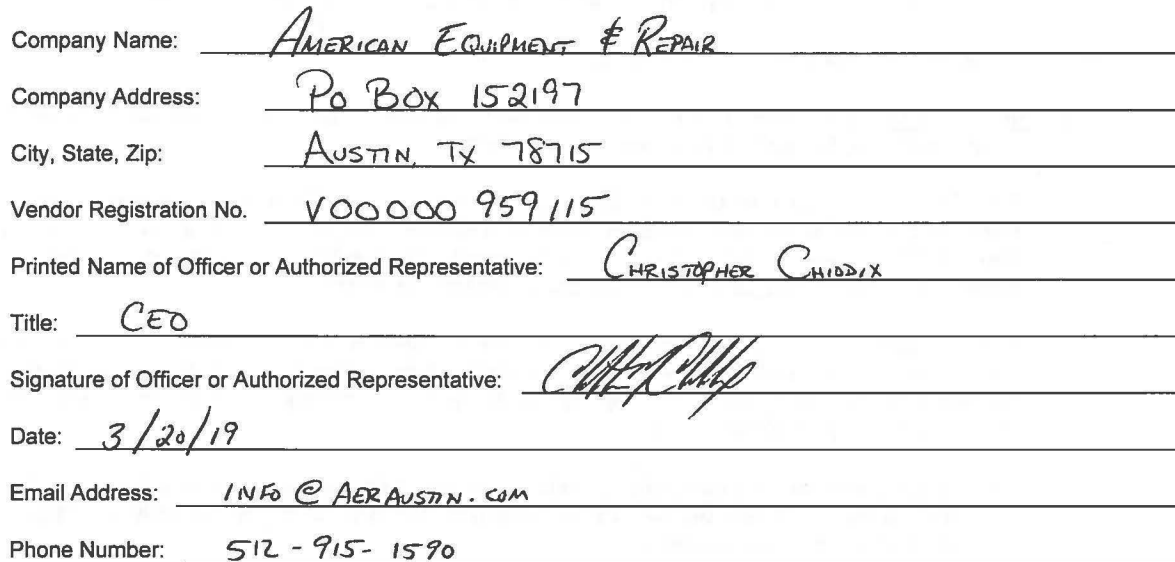 Company Name: AMERICAN EQUIPMENT & REPAIR
Company Address: PO BOX 152197
City, State, Zip: AUSTIN, TX 78715
Vendor Registration No. V00000 959115
Printed Name of Officer or Authorized Representative: CHRISTOPHER CHIDDIX
Title: CEO
Signature of Officer or Authorized Representative:
Date: 3/20/19
Email Address: INFO @ AERAUSTIN.COM
Phone Number: 512-915-1590